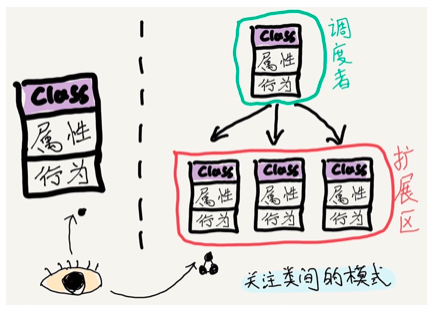 Class
属性
行为
Class
属性
行为
调度者
Class
属性
行为
Class
属性
行为
Class
属性
行为
扩展区
关注类间的模式